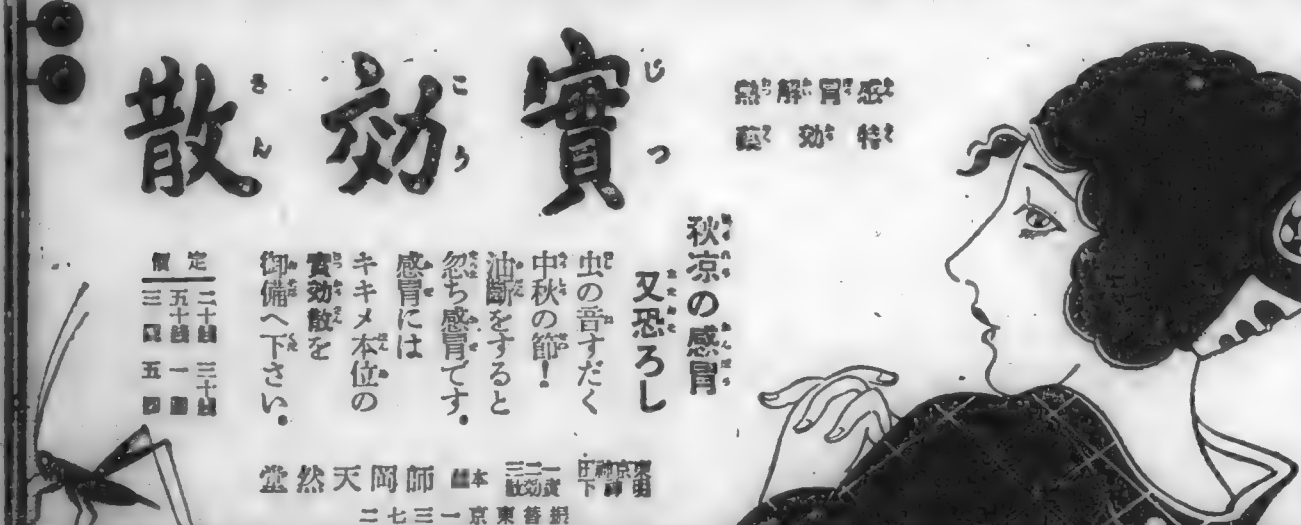 感冒解熱
特効藥
實効散
じつこうさん
秋凉の感冒
又恐ろし
虫の音すだく
中秋の節!
油斷をすると
忽ち感冒です。
感冒には
キキメ本位の
實効散を
御備へ下さい。
定價
二十錢 三十錢
五十錢 一圓
三圓 五圓
本舖 師岡天然堂
振替東京一三七二